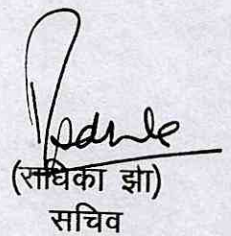 (राधिका झा)
सचिव